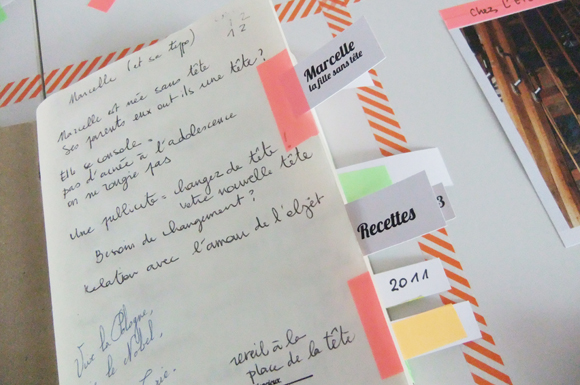 12
Marcelle (et sa typo)
Marcelle est née sans tête
Ses parents eux ont-ils une tête?
Elle se console
pas d'acnée à l'adolescence
on ne rougie pas
Une publicité = changez de tête!
votre nouvelle tête
Besoin de changement?
Relation avec l'amour de l'objet
Vive la Pologne,
le Nobel,
reveil à la
place de la tête
Marcelle
la fille sans tête
Recettes
3
2011
Chez, l'